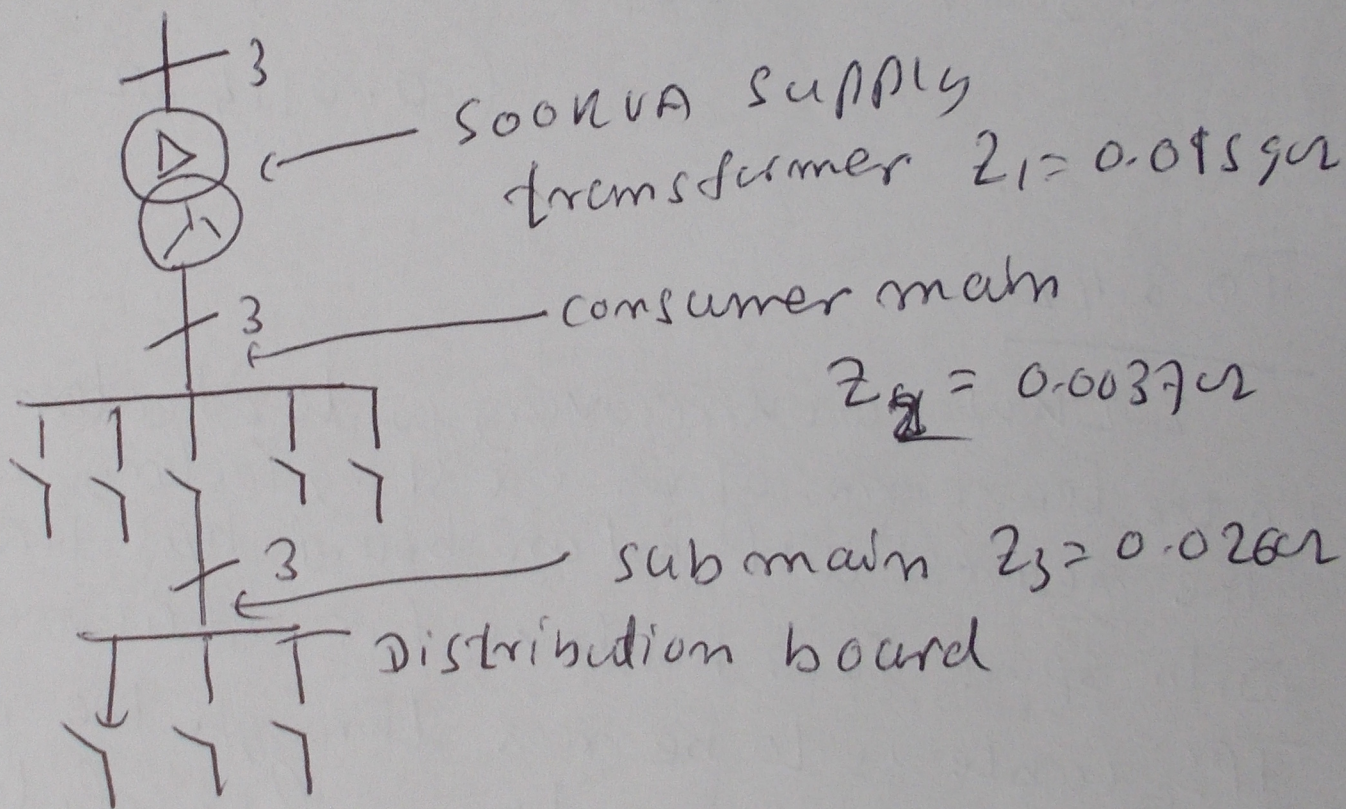 3
500KVA supply
transformer Z1 = 0.0159Ω
3
consumer main
Z2 = 0.0037Ω
3
submain Z3 = 0.026Ω
Distribution board